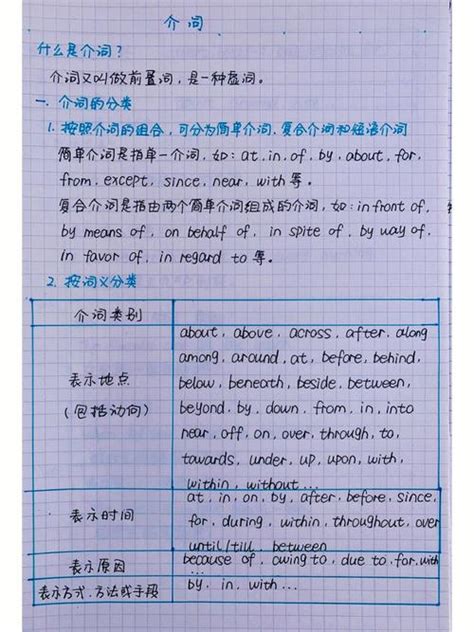 介词
什么是介词？
介词又叫做前置词，是一种虚词。
一. 介词的分类
1. 按照介词的组合，可分为简单介词，复合介词和短语介词
简单介词是指单一介词，如：at, in, of, by, about, for,
from, except, since, near, with 等。
复合介词是指由两个简单介词组成的介词，如：in front of,
by means of, on behalf of, in spite of, by way of,
in favor of, in regard to 等。
2. 按词义分类
介词类别
表示地点
(包括动向)
about, above, across, after, along
among, around, at, before, behind,
below, beneath, beside, between,
beyond, by, down, from, in, into
near, off, on, over, through, to,
towards, under, up, upon, with,
within, without ...
表示时间
at, in, on, by, after, before, since,
for, during, within, throughout, over
until/till, between
表示原因
because of, owing to, due to, for, with
...
表示方式、方法或手段
by, in, with ...